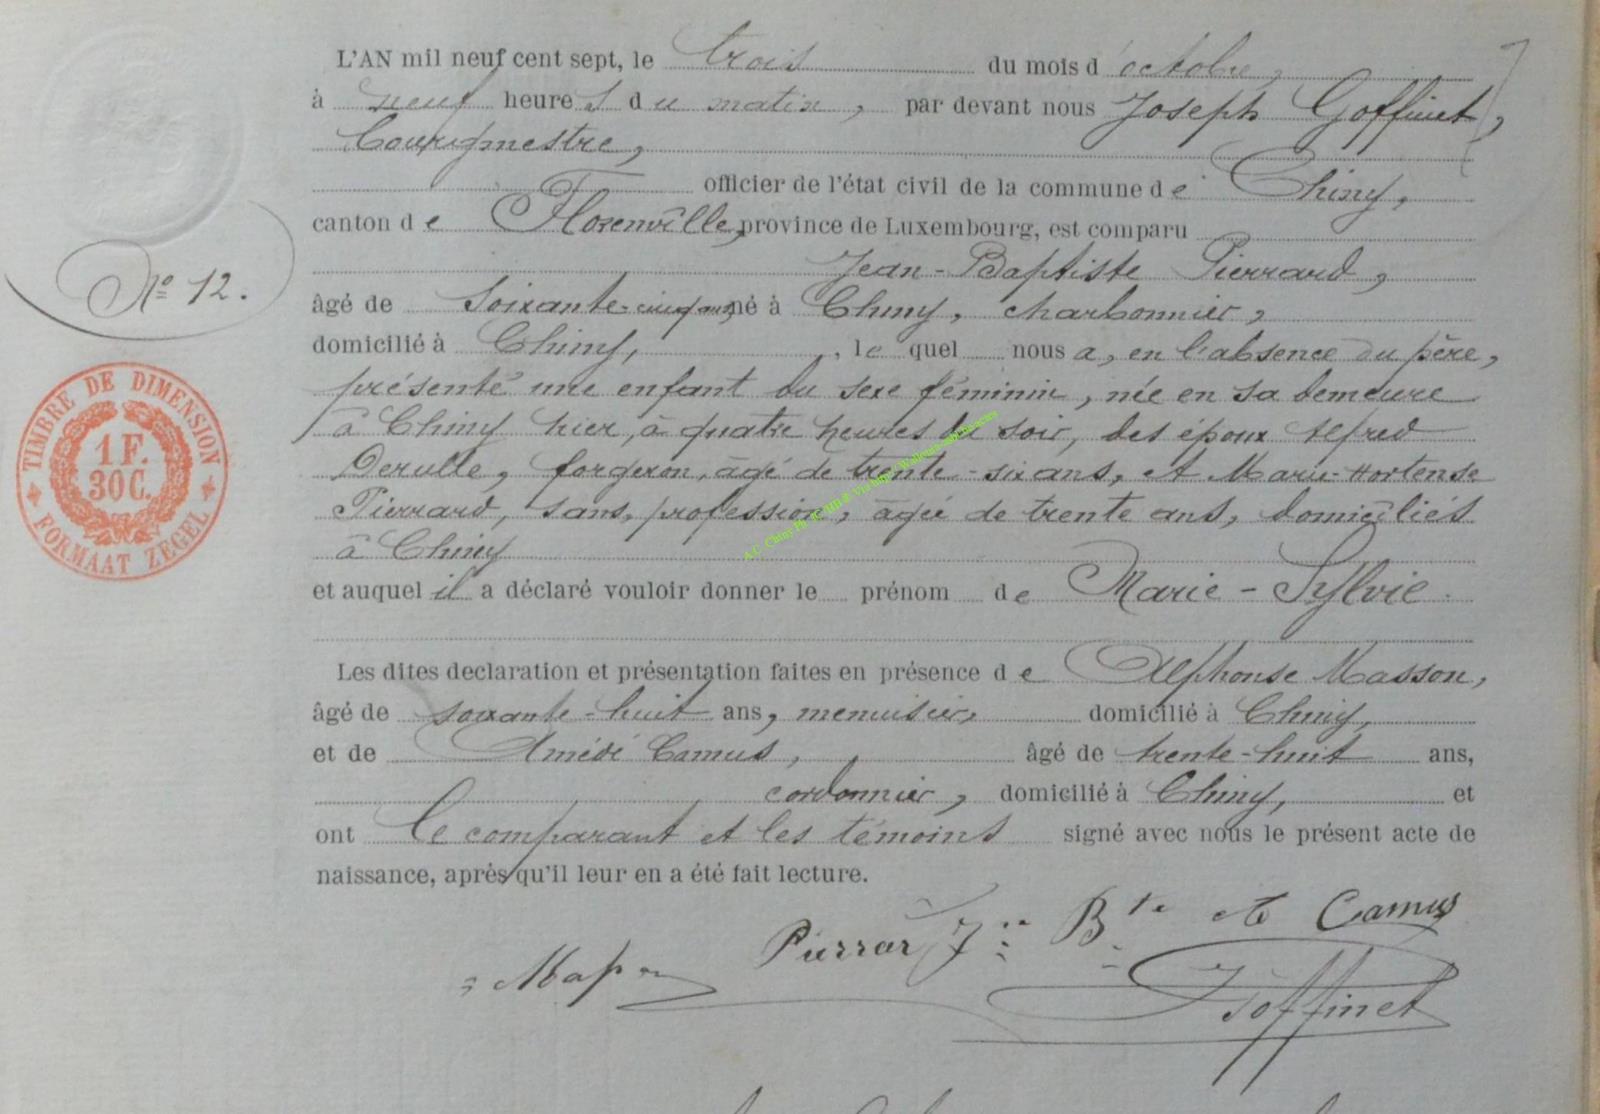 L'AN mil neuf cent sept, le trois du mois d'octobre,
à neuf heures du matin, par devant nous Joseph Goffinet,
bourgmestre,
officier de l'état civil de la commune de Chiny,
canton de Florenville, province de Luxembourg, est comparu
Jean-Baptiste Pierrard,
âgé de soixante-cinq ans, né à Chiny, charbonnier,
domicilié à Chiny, , le quel nous a, en l'absence du père,
présenté une enfant du sexe féminin, née en sa demeure
à Chiny hier, à quatre heures du soir, des époux Alfred
Derulle, forgeron, âgé de trente-six ans, et Marie-Hortense
Pierrard, sans profession, âgée de trente ans, domiciliés
à Chiny
et auquel il a déclaré vouloir donner le prénom de Marie-Sylvie.
Les dites declaration et présentation faites en présence de Alphonse Masson,
âgé de soixante-huit ans, menuisier, domicilié à Chiny,
et de Amédé Camus, âgé de trente-huit ans,
cordonnier, domicilié à Chiny, et
ont le comparant et les témoins signé avec nous le présent acte de
naissance, après qu'il leur en a été fait lecture.
Pierrar J. Bte A Camus
JGoffinet
No 12.
TIMBRE DE DIMENSION
1 F.
30 C.
FORMAAT ZEGEL
A.C. Chiny